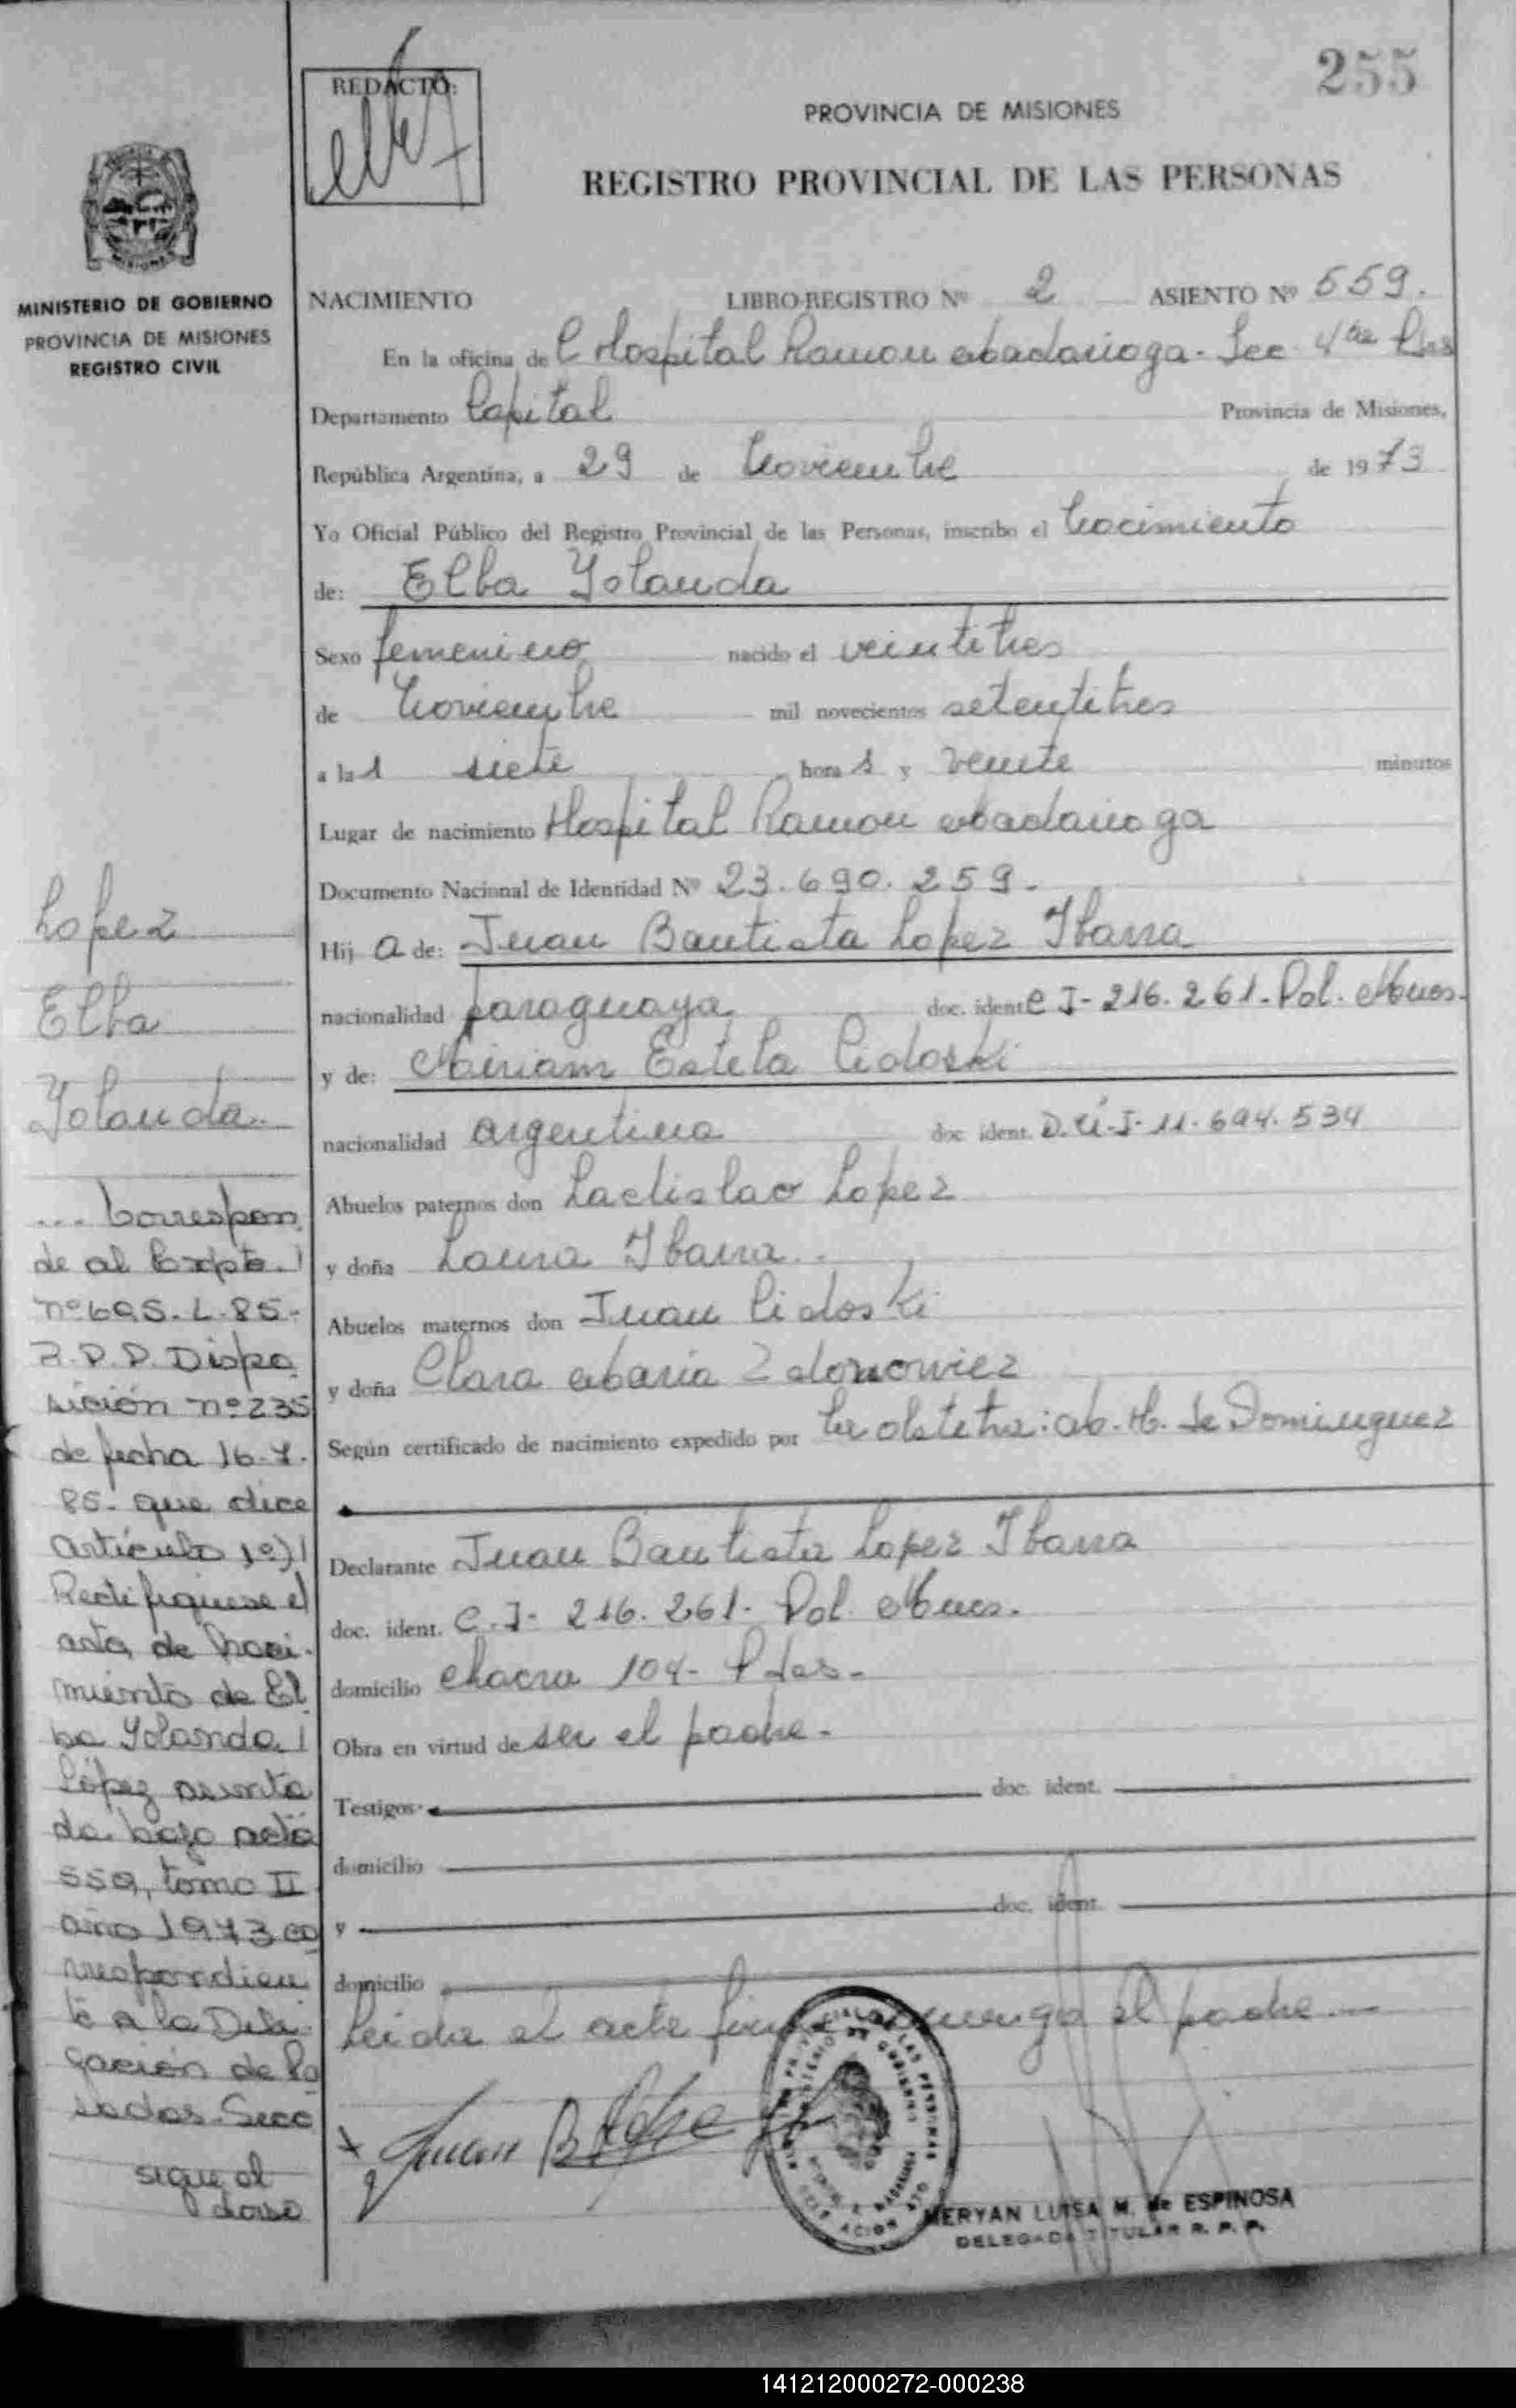 255
REDACTÓ:
PROVINCIA DE MISIONES
REGISTRO PROVINCIAL DE LAS PERSONAS
MINISTERIO DE GOBIERNO
PROVINCIA DE MISIONES
REGISTRO CIVIL
NACIMIENTO LIBRO-REGISTRO Nº 2 ASIENTO Nº 559.
En la oficina de l Hospital Ramon Madariaga - Sec 4ta Pdas
Departamento Capital Provincia de Misiones,
República Argentina, a 29 de Noviembre de 1973
Yo Oficial Público del Registro Provincial de las Personas, inscribo el Nacimiento
de: Elba Yolanda
Sexo femenino nacido el veintitres
de Noviembre mil novecientos setentitres
a las siete horas y veinte minutos
Lugar de nacimiento Hospital Ramon Madariaga
Documento Nacional de Identidad Nº 23.690.259-
Hija de: Juan Bautista Lopez Ibarra
nacionalidad paraguaya doc. ident C I- 216.261- Pol. Mnes.
y de: Miriam Estela Cidoski
nacionalidad argentina doc ident. D.N.I- 11.694.534
Abuelos paternos don Ladislao Lopez
y doña Laura Ibarra
Abuelos maternos don Juan Cidoski
y doña Clara Maria Zdonowiez
Según certificado de nacimiento expedido por la obstetra: M. H. de Dominguez
Declarante Juan Bautista Lopez Ibarra
doc. ident. C.I- 216.261- Pol. Mnes.
domicilio chacra 104- Pdas-
Obra en virtud de ser el padre-
Testigos: doc. ident.
domicilio
y doc. ident.
domicilio
Leida el acta firma el padre
Juan B Lopez
MERYAN LUISA M. de ESPINOSA
DELEGADA TITULAR R. P. P.
Lopez
Elba
Yolanda
... Correspon
de al Expte.
nº 605-L-85-
R.P.P. Dispo
sición nº 235
de fecha 16-7-
85- que dice
Artículo 1º)
Rectifíquese el
acta de Naci-
miento de El
ba Yolanda
López asenta
da bajo acta
559, tomo II
año 1973 co
rrespondien
te a la Dele
gación de Po
sadas-Secc
sigue al
dorso
141212000272-000238